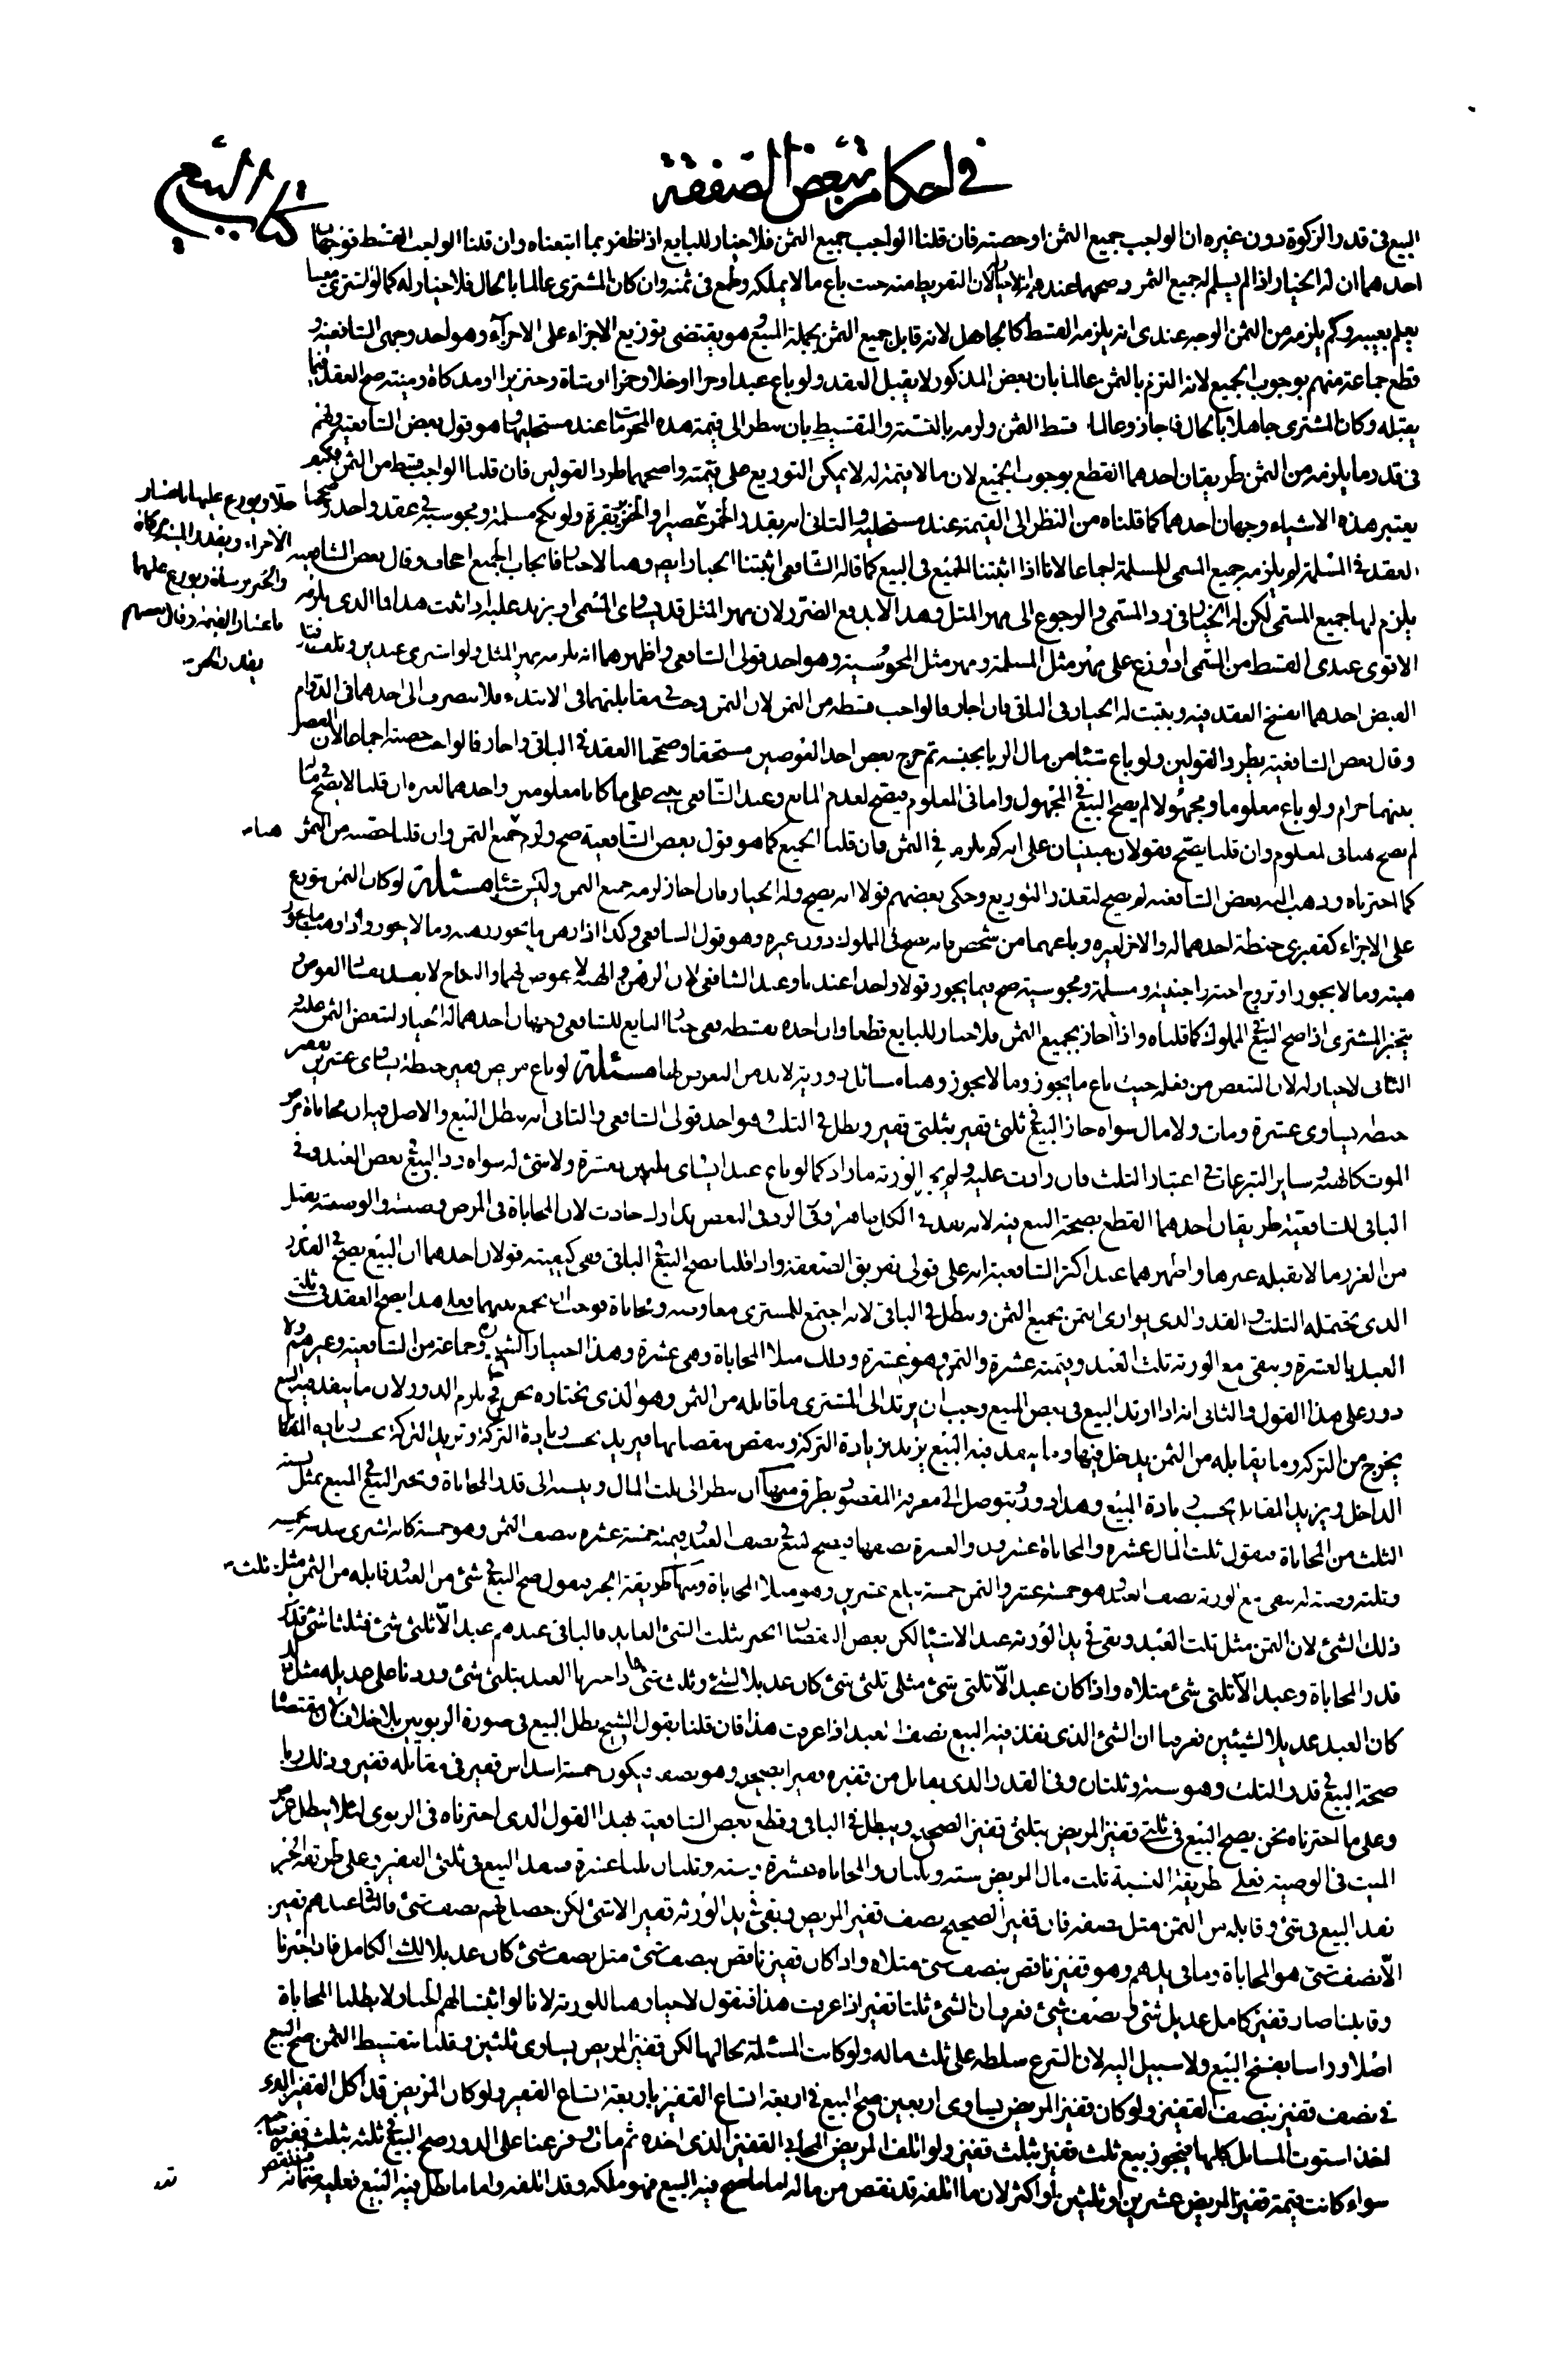 في احكام تبعض الصفقة
كتاب البيع
البيع في قدر الزكوة دون غيره ان الواجب جميع الثمن او حصته فان قلنا الواجب جميع الثمن فلا خيار للبايع اذ اظفر بما ابتعناه وان قلنا الواجب القسط فوجهان
احدهما ان له الخيار اذ لم يسلم له جميع الثمن واصحهما عندهم انه لا خيار لان التفريط منه حيث باع ما لا يملكه وطمع في ثمنه وان كان المشتري عالما بالحال فلا خيار له كما لو اشترى معيبا
يعلم بعيبه وكم يلزمه من الثمن الوجه عندي انه يلزمه القسط كالجاهل لانه قابل جميع الثمن بجملة المبيع وهو يقتضي توزيع الاجزاء على الاجزاء وهو احد وجهي الشافعية و
قطع جماعة منهم بوجوب الجميع لانه التزم بالثمن عالما بان بعض المذكور لا يقبل العقد ولو باع عبدا وحرا او خلا وخمرا او شاة وخنزيرا او مذكاة وميتة صح العقد فيما
يقبله وكان المشتري جاهلا بالحال فاجاز وعالما قسط الثمن ولزمه بالنسبة والتقسيط بان ينظر الى قيمة هذه المحرمات عند مستحليها وهو قول بعض الشافعية ولهم
في قدر ما يلزمه من الثمن طريقان احدهما القطع بوجوب الجميع لان ما لا قيمة له لا يمكن التوزيع على قيمته واصحهما طرد القولين فان قلنا الواجب قسط من الثمن فكيف
يعتبر هذه الاشياء وجهان احدهما كما قلناه من النظر الى القيمة عند مستحليه والثاني انه يقدر الخمر عصيرا والخنزير بقرة ولو نكح مسلمة ومجوسية في عقد واحد وصححنا
خلا ويوزع عليها باعتبار
الاجزاء ويقدر الميتة مذكاة
والخنزير شاة ويوزع عليهما
باعتبار القيمة وقال بعضهم
يقدر الخمر
العقد في المسلمة لم يلزمه جميع المسمى للمسلمة اجماعا لانا اذا اثبتنا الجميع في البيع كما قاله الشافعي اثبتنا الخيار ايضا وهنا لا خيار فايجاب الجميع اجحاف وقال بعض الشافعية
يلزم لها جميع المسمى لكن له الخيار في رد المسمى والرجوع الى مهر المثل وهذا لا يدفع الضرر لان مهر المثل قد يساوي المسمى او يزيد عليه اذا ثبت هذا فما الذي يلزمه
الاقوى عندي القسط من المسمى اذا وزع على مهر مثل المسلمة ومهر مثل المجوسية وهو احد قولي الشافعي واظهرهما انه يلزمه مهر المثل ولو اشترى عبدين وتلف قبل
القبض احدهما انفسخ العقد فيه ويثبت له الخيار في الباقي فان اجاز فالواجب قسطه من الثمن لان الثمن وجب في مقابلتهما في الابتداء فلا ينصرف الى احدهما في الدوام
وقال بعض الشافعية يطرد القولين ولو باع شيئا من مال الربا بجنسه ثم خرج بعض احد العوضين مستحقا وصححنا العقد في الباقي واجاز فالواجب حصته اجماعا لان الفضل
بينهما حرام ولو باع معلوما ومجهولا لم يصح البيع في المجهول واما في المعلوم فيصح لعدم المانع وعند الشافعي يبنى على ما كانا معلومين واحدهما لغيره ان قلنا لا يصح في ماله
لم يصح هنا في المعلوم وان قلنا يصح فقولان مبنيان على انه كم يلزمه في الثمن فان قلنا الجميع كما هو قول بعض الشافعية صح ولزم جميع الثمن وان قلنا حصته من الثمن هنا
كما اخترناه وذهب اليه بعض الشافعية لم يصح لتعذر التوزيع وحكى بعضهم قولا انه يصح وله الخيار فان اجاز لزمه جميع الثمن وليس شيئا مسئلة لو كان الثمن يتوزع
على الاجزاء كقفيزي حنطة احدهما له والاخر لغيره وباعهما من شخص فانه يصح في المملوك دون غيره وهو قول الشافعي وكذا اذا رهن ما يجوز رهنه وما لا يجوز او وهب ما يجوز
هبته وما لا يجوز او تزوج اخته واجنبية ومسلمة ومجوسية صح فيما يجوز قولا واحدا عندنا وعند الشافعي لان الرهن والهبة لا عوض لهما والنكاح لا يفسد بفساد العوض و
يتخير المشتري اذا صح البيع في المملوك كما قلناه واذا اجاز بجميع الثمن فلا خيار للبايع قطعا وان اجازه بقسطه ففي خيار البايع للشافعي وجهان احدهما له الخيار لتبعض الثمن عليه و
الثاني لا خيار له لان التبعض من فعله حيث باع ما يجوز وما لا يجوز وهنا مسائل دورية لا بد من التعرض لها مسئلة لو باع مريض قفيز حنطة يساوي عشرين بقفيز
حنطة يساوي عشرة ومات ولا مال سواه جاز البيع في ثلثي قفيز بثلثي قفيز وبطل في الثلث وهو احد قولي الشافعي والثاني انه يبطل البيع والاصل فيه ان محاباة مرض
الموت كالهبة وساير التبرعات في اعتبار الثلث فان زادت عليه ولم يجز الورثة ما زاد كما لو باع عبدا يساوي ثلثين بعشرة ولا شئ له سواه رد البيع في بعض العبد وفي
الباقي للشافعية طريقان احدهما القطع بصحة البيع فيه لانه نفذ في الكل ظاهرا والرد في البعض تدارك حادث لان المحاباة في المرض وصية والوصية يقبل
من الغرر ما لا يقبله غيرها واظهرهما عند اكثر الشافعية انه على قولي تفريق الصفقة واذا قلنا يصح البيع في الباقي ففي كيفيته قولان احدهما ان البيع يصح في القدر
الذي يحتمله الثلث والقدر الذي يوازي الثمن بجميع الثمن ويبطل في الباقي لانه اجتمع للمشتري معاوضة ومحاباة فوجب ان يجمع بينهما فعلى هذا يصح العقد في ثلثي
العبد بالعشرة ويبقى مع الورثة ثلث العبد وقيمته عشرة والثمن وهو عشرة وذلك مثلا المحاباة وهي عشرة وهذا اختيار الشيخ ره وجماعة من الشافعية وغيرهم ولا
دور على هذا القول والثاني انه اذا ارتد البيع في بعض المبيع وجب ان يرتد الى المشتري ما قابله من الثمن وهو الذي نختاره نحن فح يلزم الدور لان ما ينفذ فيه البيع
يخرج من التركة وما يقابله من الثمن يدخل فيها وما ينفذ فيه البيع يزيد بزيادة التركة وينقص بنقصانها فيزيد بحسب زيادة التركة وتزيد التركة بحسب زيادة المقابل
الداخل ويزيد المقابل بحسب زيادة البيع وهذا دور ويتوصل الى معرفة المقصود بطرق منها ان ينظر الى ثلث المال وينسبه الى قدر المحاباة ونجيز البيع في المبيع بمثل نسبة
الثلث من المحاباة فنقول ثلث المال عشرة والمحاباة عشرون والعشرة نصفها فيصح البيع في نصف العبد وقيمته خمسة عشر بنصف الثمن وهو خمسة كانه اشترى سدسه بخمسة
وثلثه وصية له يبقى مع الورثة نصف العبد وهو خمسة عشر والثمن خمسة تبلغ عشرين وهو مثلا المحاباة ومنها طريقة الجبر فنقول صح البيع في شئ من العبد وقابله من الثمن مثل ثلث
ذلك الشئ لان الثمن مثل ثلث العبد وبقي في يد الورثة عبد الا شيئا لكن بعض النقصان انجبر بثلث الشئ العايد فالباقي عندهم عبد الا ثلثي شئ فثلثا شئ قدر
قدر المحاباة وعبد الا ثلثي شئ مثلاه واذا كان عبد الا ثلثي شئ مثلي ثلثي شئ كان عديلا لشئ وثلث شئ فاذا جبرنا العبد بثلثي شئ وزدنا على عديله مثل ذلك
كان العبد عديلا لشيئين فعرفنا ان الشئ الذي نفذ فيه البيع نصف العبد اذا عرفت هذا فان قلنا بقول الشيخ بطل البيع في صورة الربويين بلا خلاف لان مقتضاه
صحة البيع في قدر الثلث وهو ستة وثلثان وفي القدر الذي يقابل من قفيزه قفيز الصحيح وهو نصفه فيكون خمسة اسداس قفيز في مقابلة قفيز وذلك ربا
وعلى ما اخترناه نحن يصح البيع في ثلثي قفيز المريض بثلثي قفيز الصحيح ويبطل في الباقي وقطع بعض الشافعية بهذا القول الذي اخترناه في الربوي لئلا يبطل غرض
الميت في الوصية فعلى طريقة النسبة ثلث مال المريض ستة وثلثان والمحاباة عشرة وستة وثلثان ثلثا عشرة فينفذ البيع في ثلثي القفيز وعلى طريقة الجبر
نفذ البيع في شئ وقابله من الثمن مثل نصفه فان قفيز الصحيح نصف قفيز المريض وبقي في يد الورثة قفيز الا شئ لكن حصل لهم نصف شئ فالباقي عندهم قفيز
الا نصف شئ هو المحاباة وما في يدهم وهو قفيز ناقص بنصف شئ مثلاه واذا كان قفيز ناقص بنصف شئ مثل نصف شئ كان عديلا لذلك الكامل فاذا جبرنا
وقابلنا صار قفيز كامل عديل شئ ونصف شئ فعرفنا ان الشئ ثلثا قفيز اذا عرفت هذا فنقول لا خيار هنا للورثة لانا لو اثبتنا لهم الخيار لابطلنا المحاباة
اصلا وراسا بفسخ البيع ولا سبيل اليه لان الشرع سلطه على ثلث ماله ولو كانت المسئلة بحالها لكن قفيز المريض يساوي ثلثين وقلنا بتقسيط الثمن صح البيع
في نصف قفيز بنصف القفيز ولو كان قفيز المريض يساوي اربعين صح البيع في اربعة اتساع القفيز باربعة اتساع القفيز ولو كان المريض قد اكل القفيز الذي
اخذ استوت المسائل كلها فيجوز بيع ثلث قفيز بثلث قفيز ولو اتلف المريض المحابي القفيز الذي اخذه ثم مات وفرعنا على الدور صح البيع في ثلثه بثلث قفيز صاحبه
سواء كانت قيمة قفيز المريض عشرين او ثلثين او اكثر لان ما اتلفه قد نقص من ماله اما ما صح فيه البيع فهو ملكه وقد اتلفه واما ما بطل فيه البيع فعليه ضمانه فينقص
قد